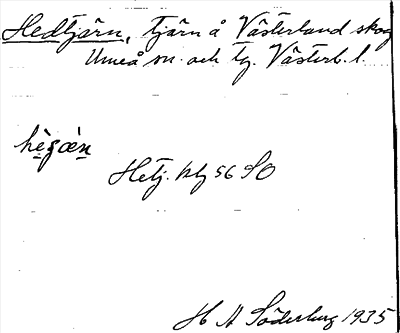 Hedtjärn, tjärn å Västerland skog
Umeå sn. och tg. Västerb. l.
hègæn
Hetj. blj 56 SO
H A Söderberg 1935